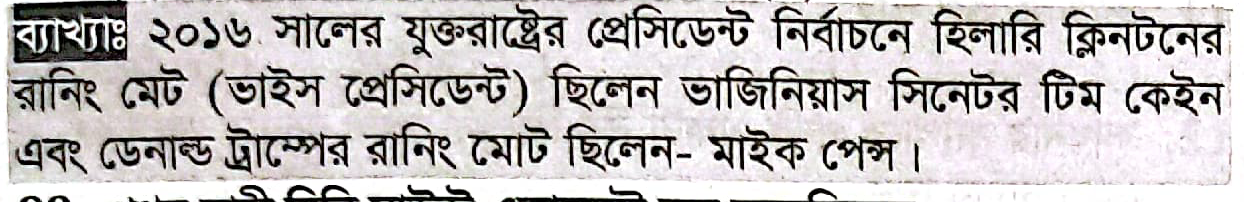 ব্যাখ্যাঃ ২০১৬ সালের যুক্তরাষ্ট্রের প্রেসিডেন্ট নির্বাচনে হিলারি ক্লিনটনের
রানিং মেট (ভাইস প্রেসিডেন্ট) ছিলেন ভার্জিনিয়াস সিনেটর টিম কেইন
এবং ডেনাল্ড ট্রাম্পের রানিং মোট ছিলেন- মাইক পেন্স।